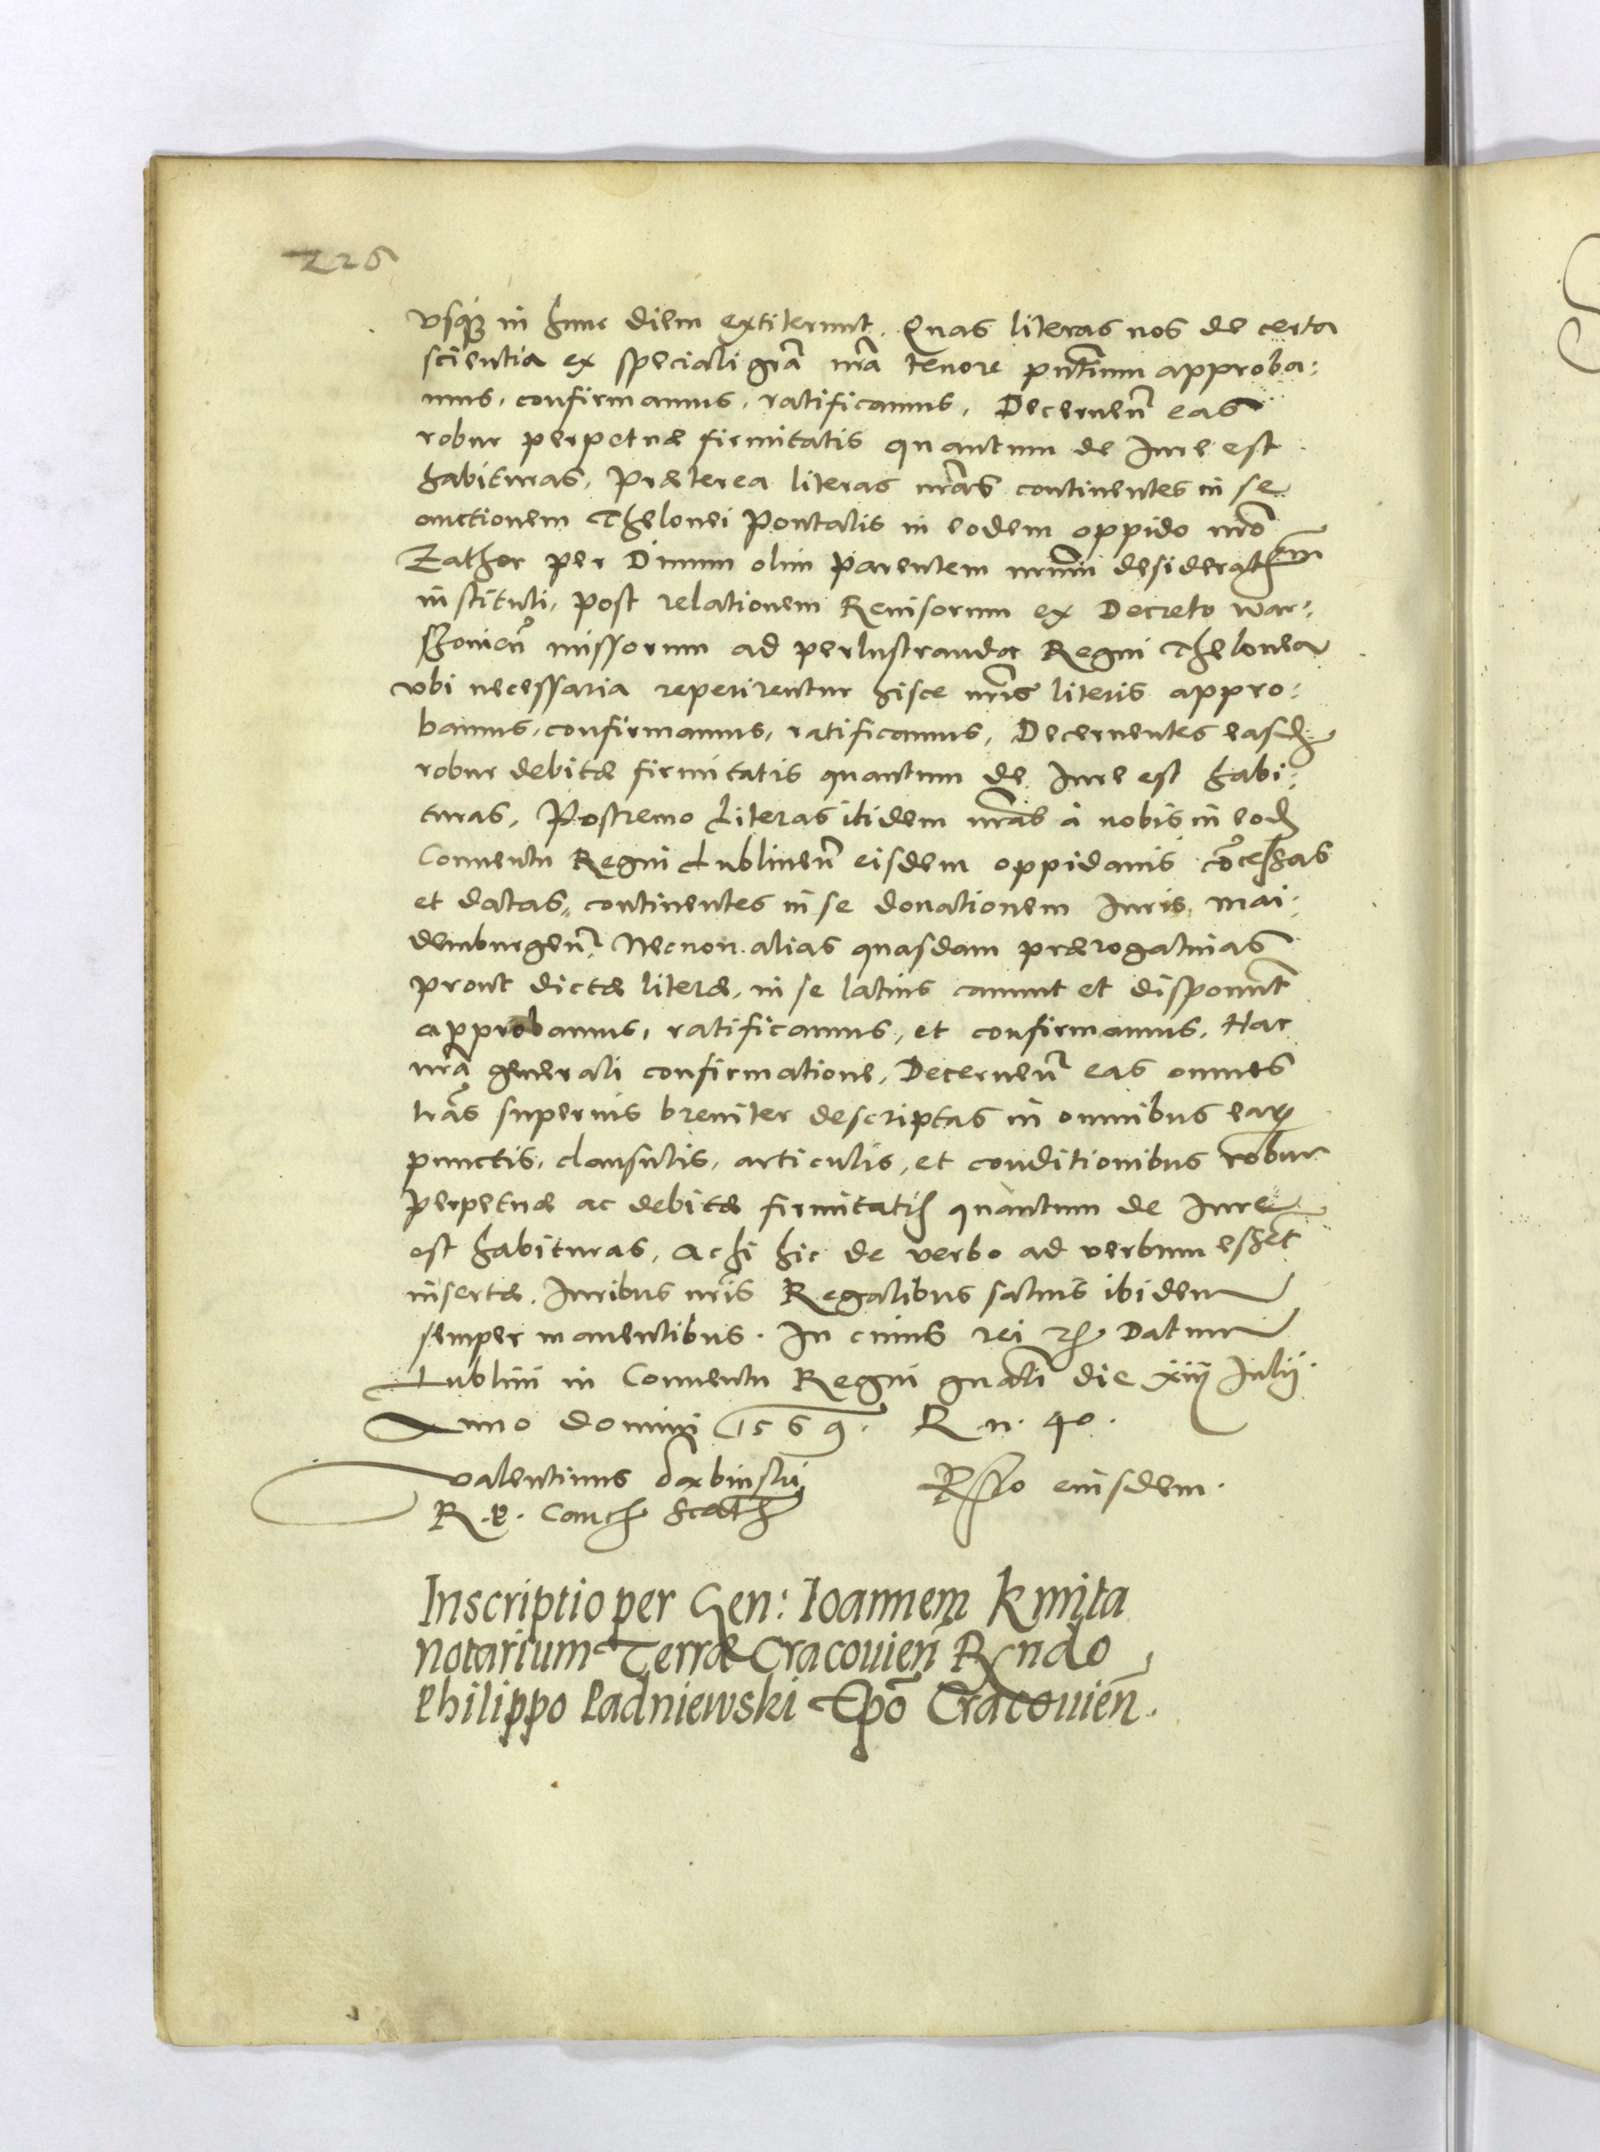 226
vsq3 in hunc diem extiterunt. Quas literas nos de certa
scientia ex speciali grã nrã tenore pntium approba:
mus, confirmamus, ratificamus, Decernen̄ eas
robur perpetuæ firmitatis quantum de Iure est
habituras, Præterea literas nrãs continentes in se
auctionem Thelonei Pontalis in eodem oppido nrõ
Zathor per Diuum olim Parentem nrūm desideratissm̄
instituti, post relationem Reuisorum ex Decreto War:
ssouien̄ missorum ad perlustranda Regni Thelonea
vbi necessaria reperirentur hisce nrĩs literis appro:
bamus, confirmamus, ratificamus, Decernentes easd
robur debitæ firmitatis quantum de Iure est habi:
turas, Postremo Literas itidem nrãs à nobis in eod
Conuentu Regni Lublinen̄ eisdem oppidanis cõcessas
et datas, continentes in se donationem Iuris mai:
demburgen̄. Necnon alias quasdam prærogatiuas
prout dictæ literæ, in se latius canunt et disponunt
approbamus, ratificamus, et confirmamus. Hac
nrã generali confirmatione, Decernen̄ eas omnes
lrãs superius breuiter descriptas in omnibus ear
punctis, clausulis, articulis, et conditionibus robur
perpetuæ ac debitæ firmitatis quantum de Iure
est habituras, ac si hic de verbo ad verbum essent
insertæ. Iuribus nrĩs Regalibus saluis ibidem
semper manentibus. In cuius rei rc Datum
Lublini in Conuentu Regni gnali die xiij Iulij.
Anno domini 1569. R n. 40.
Valentinus Dembinski Rsso eiusdem.
R. P. Canc sscpt
Inscriptio per Gen: Ioannem Kmita
notarium Terræ Cracouien̄ Rndo
Philippo Padniewski Epõ Cracouien̄.